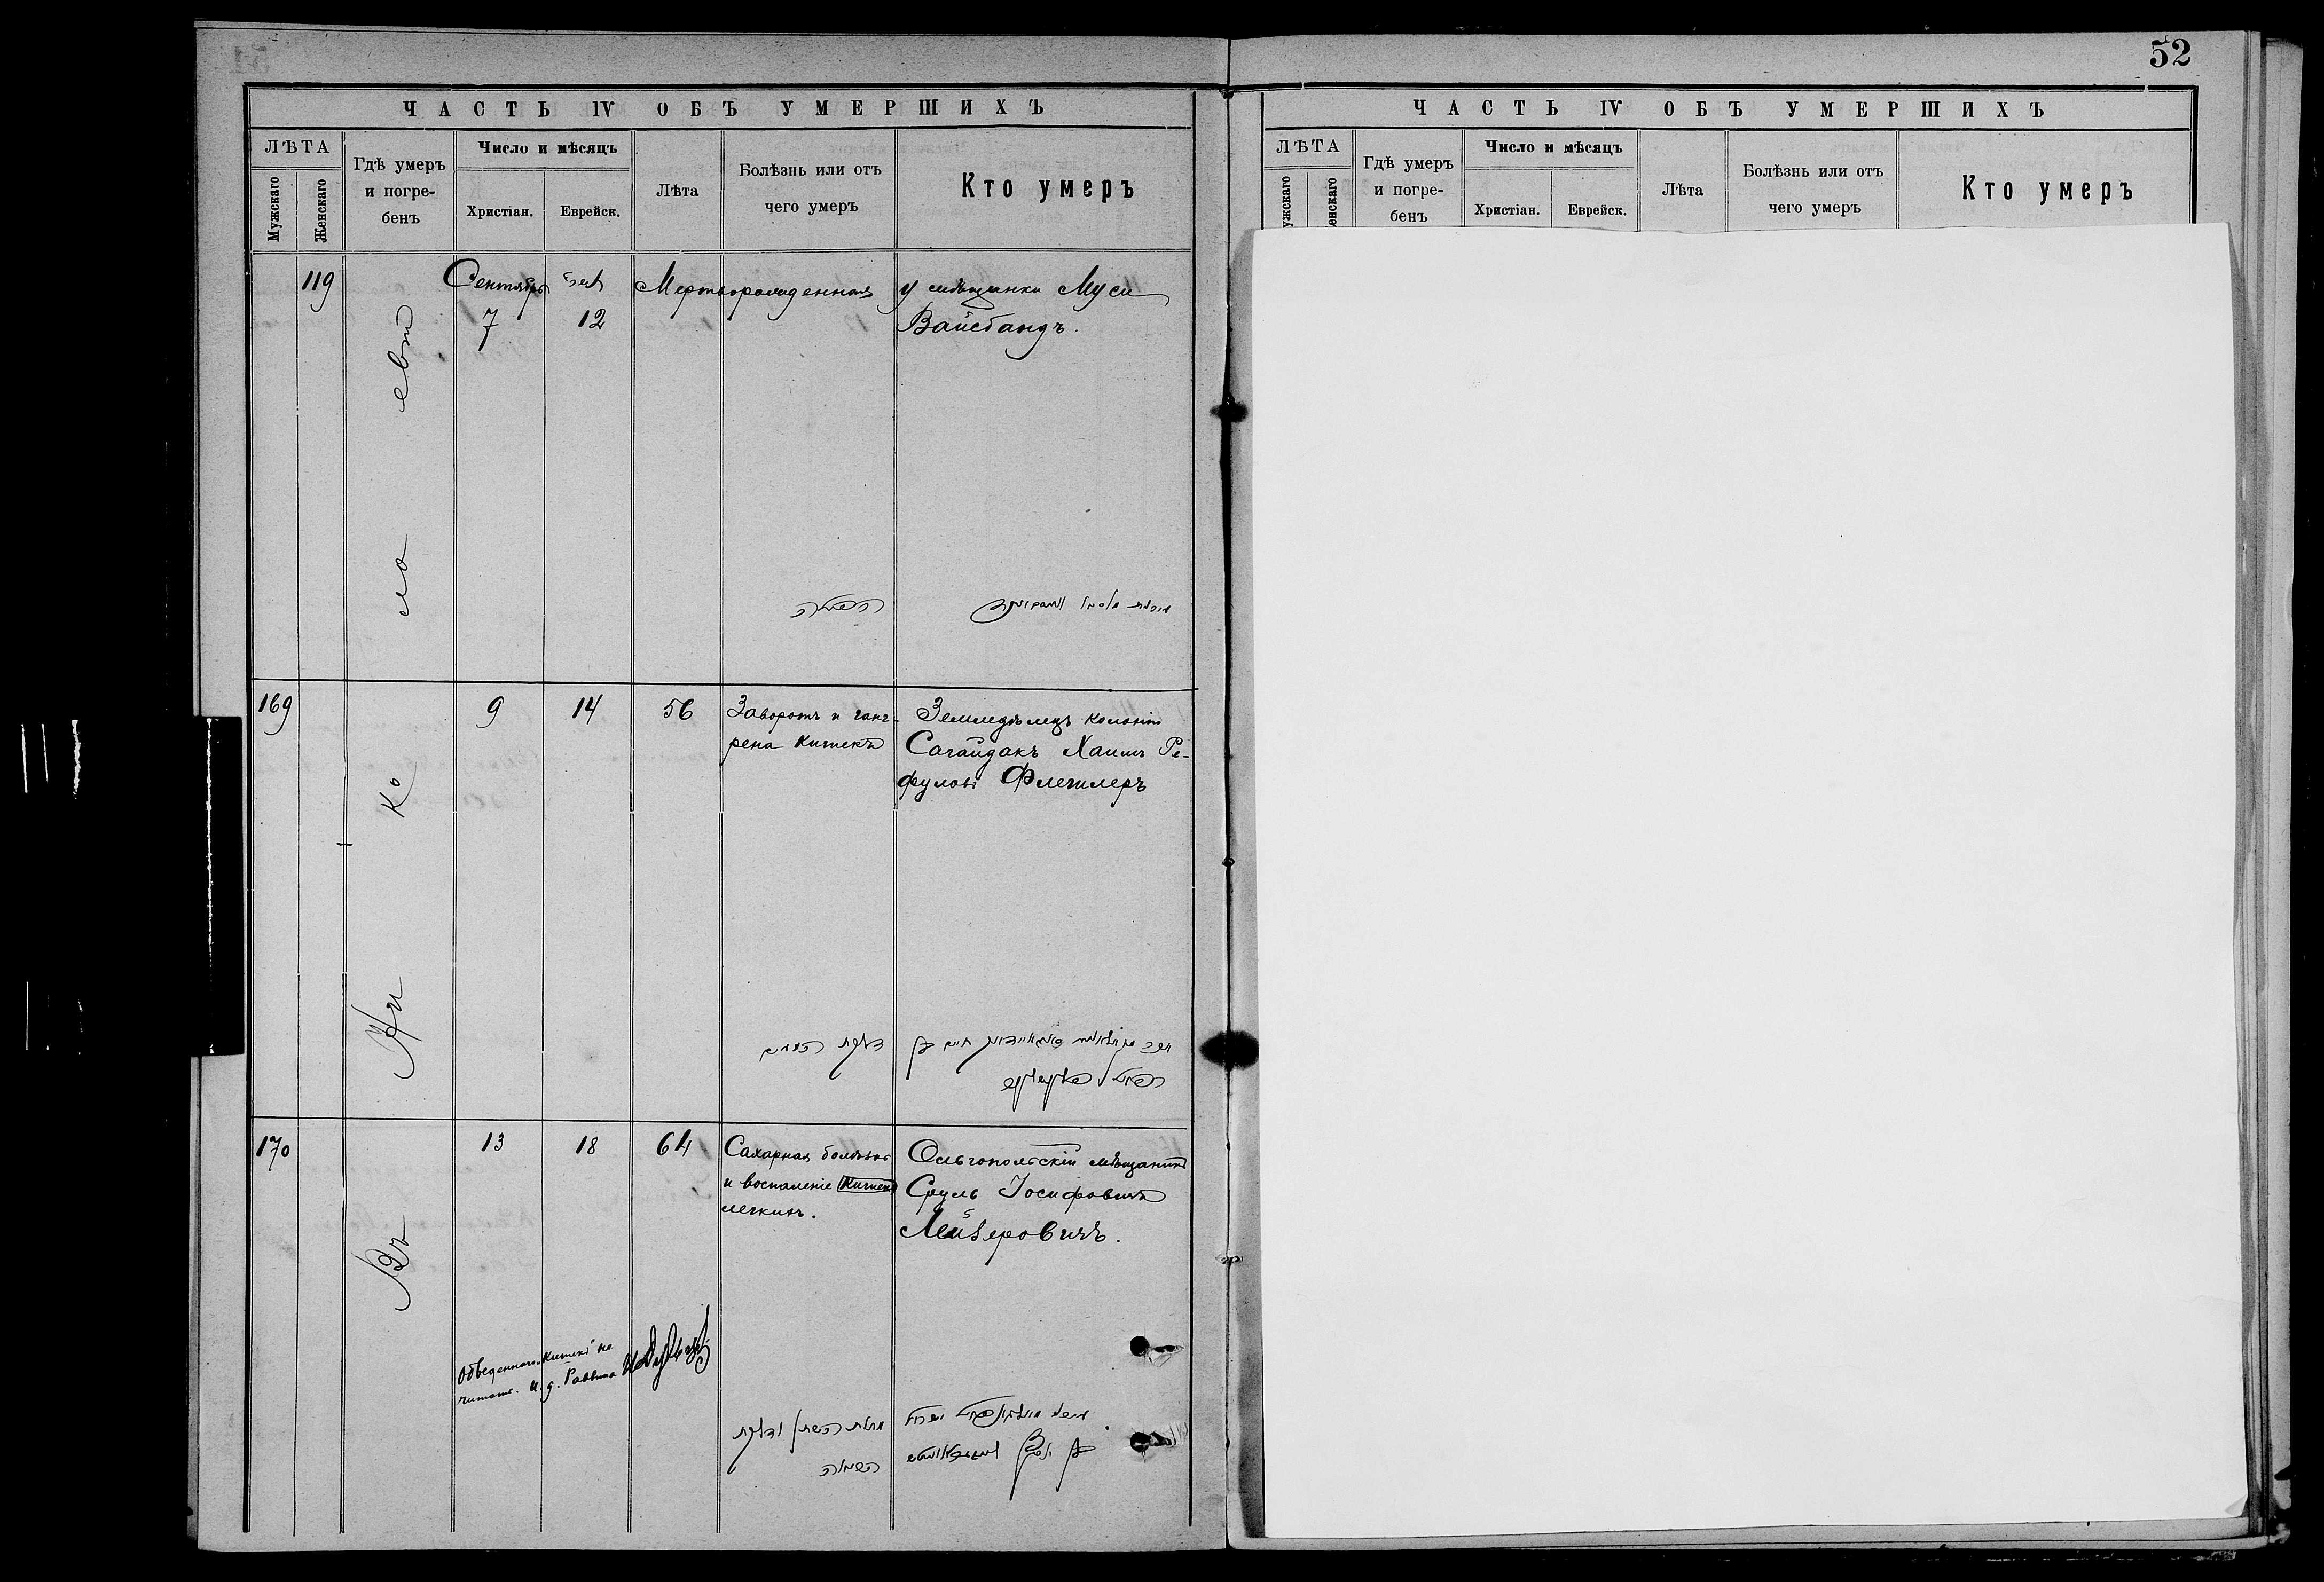 52
ЧАСТЬ IV ОБЪ УМЕРШИХЪ
ЛѢТА
Мужскаго
Женскаго
Гдѣ умеръ
и погре-
бенъ
Число и мѣсяцъ
Христіан.
Еврейск.
Лѣта
Болѣзнь или отъ
чего умеръ
Кто умеръ
Въ Николаевѣ
119
Сентябрь
7
12
Мертворожденная
у мѣщанки Муси
Вайсбандъ.
169
9
14
56
Заворотъ и ганг-
рена кишекъ
Земледѣлецъ колоніи
Сагайдакъ Хаимъ Ре-
фуловъ Флешлеръ
דלקת המעים
170
13
18
64
Сахарная болѣзнь
и воспаленіе кишекъ
легкихъ.
Ольгопольскій мѣщанинъ
Сруль Іосифовичъ
Лейзеровичъ.
Обведеннаго „кишекъ" не
читать. И. д. Раввина
ЧАСТЬ IV ОБЪ УМЕРШИХЪ
ЛѢТА
ужскаго
енскаго
Гдѣ умеръ
и погре-
бенъ
Число и мѣсяцъ
Христіан.
Еврейск.
Лѣта
Болѣзнь или отъ
чего умеръ
Кто умеръ